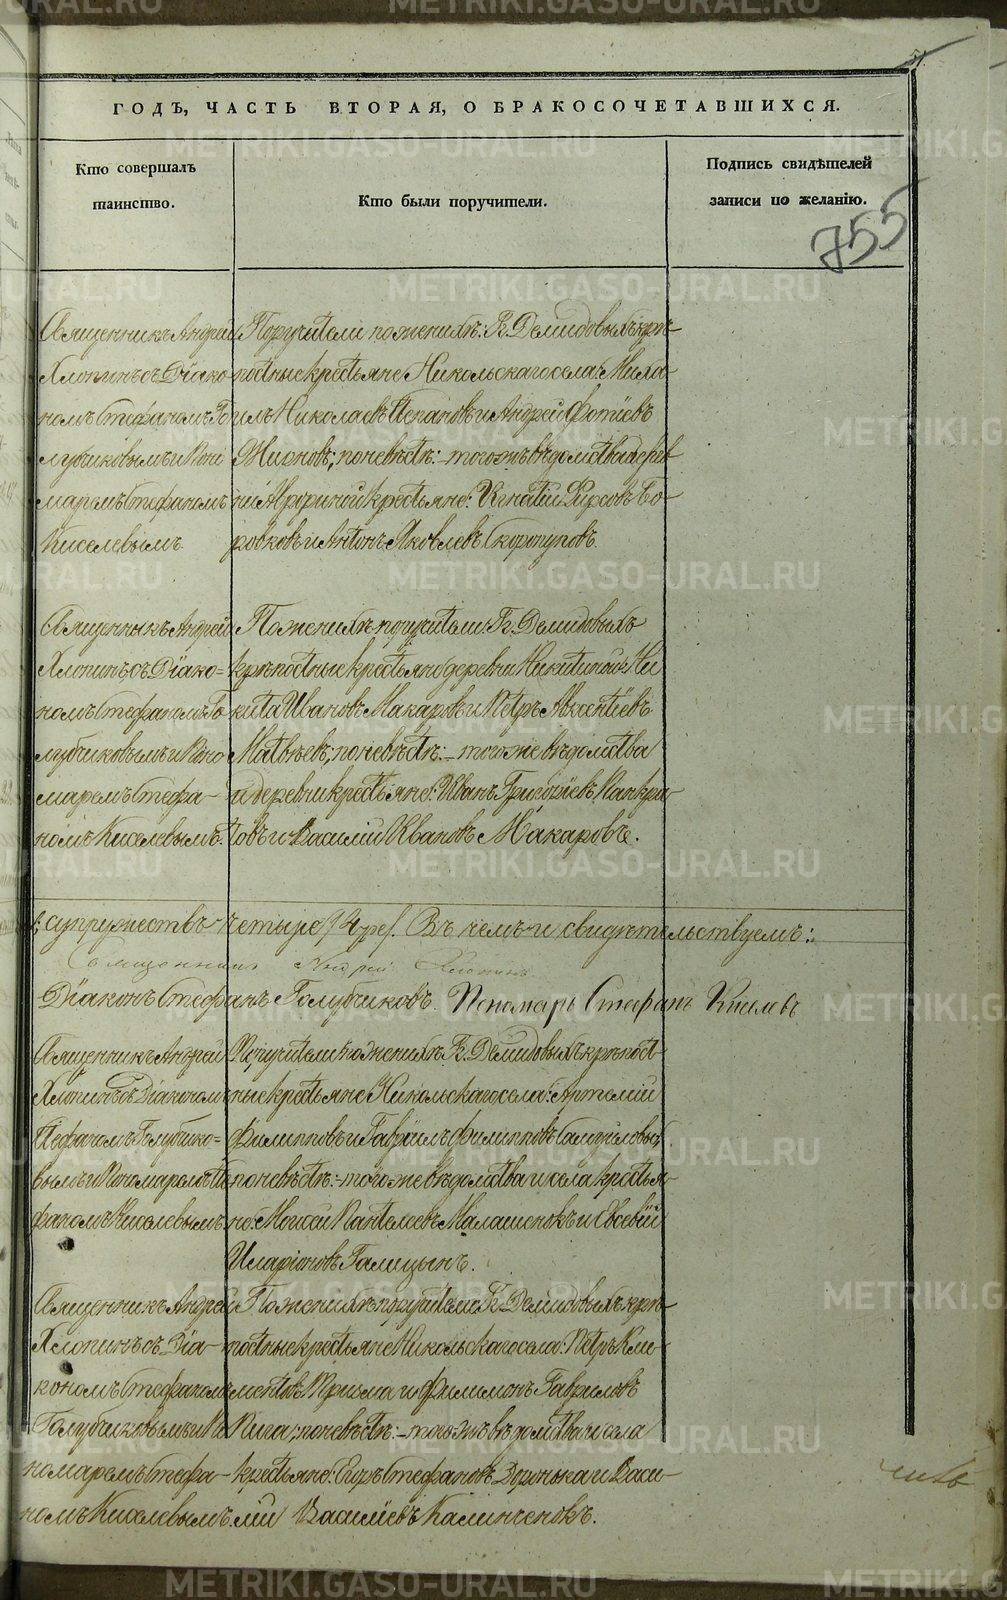 51
ГОДЪ, ЧАСТЬ ВТОРАЯ, О БРАКОСОЧЕТАВШИХСЯ.
Кто совершалъ таинство.
Кто были поручители.
Подпись свидѣтелей записи по желанію.
755
Священникъ Андрей
Хлопинъ съ Діако-
номъ Стефаномъ Го
лубчиковымъ и Поно
маремъ Стефаномъ
Киселевымъ
Поручители по женихѣ: Гг. Демидовыхъ крѣ-
постные крестьяне Никольскаго села Миха-
илъ Николаевъ и Андрей Фотіевъ
по невѣстѣ: того жъ вѣдомства дерев
ни крестьяне: Игнатій Фирсовъ Бо-
ровковъ и Антонъ Яковлевъ Скоропуповъ.
Священникъ Андрей
Хлопинъ съ Діако-
номъ Стефаномъ Го
лубчиковымъ и Поно
маремъ Стефа-
номъ Киселевымъ.
По женихѣ поручители: Гг. Демидовыхъ
крѣпостные крестьяне деревни Никитиной: Ни
кита Ивановъ Макаровъ и Петръ Авксентіевъ
Матвѣевъ; по невѣстѣ: того же вѣдомства
и деревни крестьяне: Иванъ Григорьевъ Панкра-
товъ и Василій Ивановъ Макаровъ.
супружествъ четыре /4 ре/. Въ чемъ и свидѣтельствуемъ:
Священникъ Андрей Хлопинъ
Діаконъ Стефанъ Голубчиковъ. Пономарь Стефанъ Киселевъ
Священникъ Андрей
Хлопинъ съ Діакономъ
Стефаномъ Голубчико-
вымъ и Пономаремъ Сте
фаномъ Киселевымъ
Поручители по женихѣ Гг. Демидовыхъ крѣпост-
ные крестьяне Никольскаго села: Артемій
Филипповъ и Гавріилъ Филипповъ
по невѣстѣ: того же вѣдомства и села крестья-
не: Моисей Пантелеевъ Малашенокъ и Евсевій
Иларіоновъ Галицынъ.
Священникъ Андрей
Хлопинъ съ Діа-
кономъ Стефаномъ
Голубчиковымъ и По
номаремъ Стефа-
номъ Киселевымъ
По женихѣ поручители Гг. Демидовыхъ крѣ-
постные крестьяне Никольскаго села: Петръ Кли-
ментовъ и Филимонъ Гавриловъ
по невѣстѣ: того жъ вѣдомства и села
крестьяне: Егоръ Стефановъ и Васи-
лій Васильевъ Калинченокъ.
METRIKI.GASO-URAL.RU